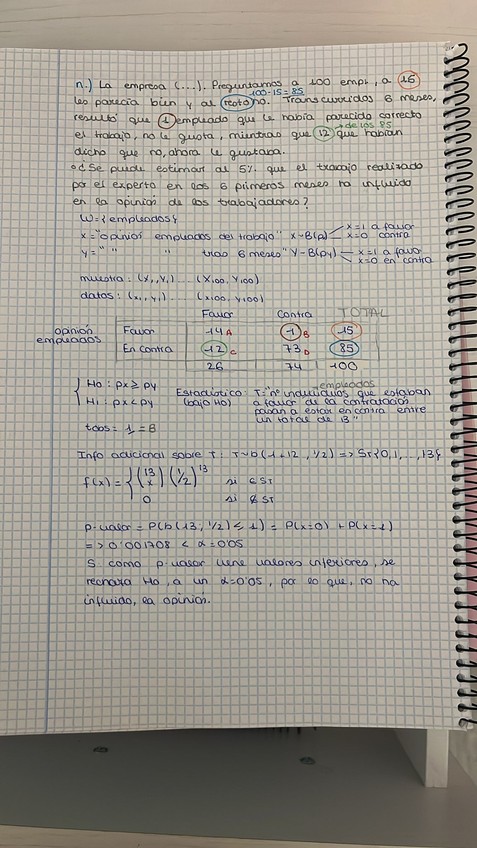 n.) La empresa (...). Preguntamos a 100 empl, a 15
100-15=85
les parecía bien y al resto no. Transcurridos 6 meses,
resultó que 1 empleado que le había parecido correcto
el trabajo, no le gusta, mientras que 12 que habían
de los 85
dicho que no, ahora le gustaba.
¿Se puede estimar al 5% que el trabajo realizado
por el experto en los 6 primeros meses ha influido
en la opinión de los trabajadores?
W={empleados}
X="opinión empleados del trabajo" X~B(px) x=1 a favor x=0 contra
Y=" " " tras 6 meses" Y~B(py) x=1 a favor x=0 en contra
muestra: (X1,Y1)...(X100,Y100)
datos: (x1,y1)...(x100,y100)
Favor Contra TOTAL
opinión empleados
Favor 14 A 1 B 15
En contra 12 C 73 D 85
26 74 100
H0: px ≥ py
H1: px < py
Estadístico: T="nº individuos que estaban
empleados
(bajo H0) a favor de la contratación
pasan a estar en contra entre
un total de 13"
tobs = 1 = B
Info adicional sobre T: T~b(1+12, 1/2) => ST{0,1,...,13}
f(x) = { (13 x) (1/2)^13 si ∈ ST
0 si ∉ ST
p-valor = P(b(13,1/2) ≤ 1) = P(x=0) + P(x=1)
=> 0'001708 < α=0'05
S como p-valor tiene valores inferiores, se
rechaza H0, a un α=0'05, por lo que, no ha
influido, la opinión.